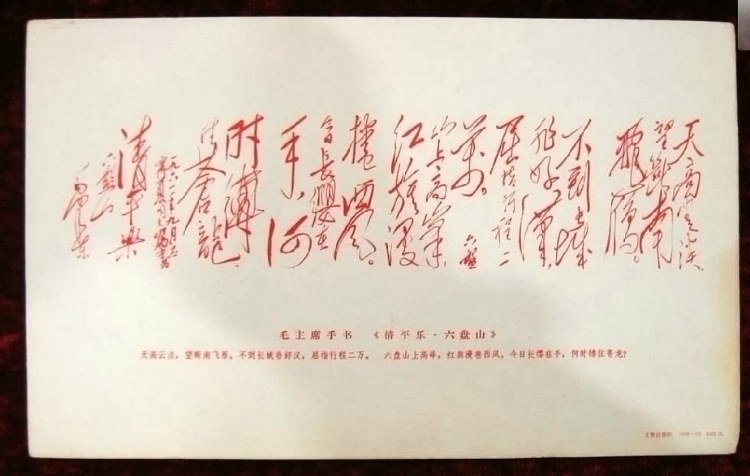 天高云淡
望斷南
飛雁。
不到長城
非好漢，
屈指行程二
万。六盤
山上高峯
紅旗漫
捲西風。
今日長纓在
手，何
時縛
住蒼龍
一九六一年九月
清平樂
六盤山
毛澤東
毛主席手书 《清平乐·六盘山》
天高云淡，望断南飞雁。不到长城非好汉，屈指行程二万。 六盘山上高峰，红旗漫卷西风。今日长缨在手，何时缚住苍龙？